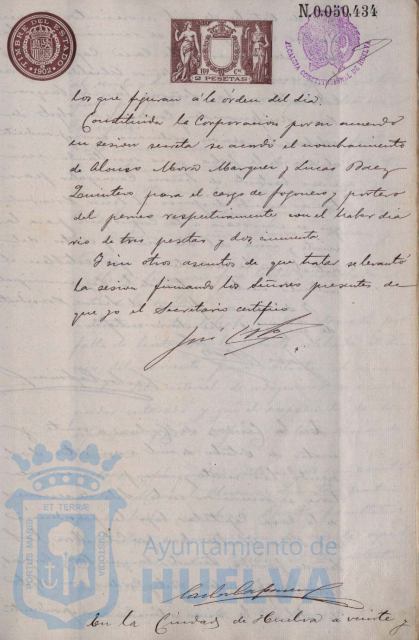 N.0.050.434
TIMBRE DEL ESTADO
1909
2 PESETAS
ALCALDIA CONSTITUCIONAL DE HUELVA
los que figuran á la órden del dia.
Constituida la Corporacion por su acuerdo
en sesion secreta se acordó el nombramiento
de Alonso Mora Marquez y Lucas Baez
Quintero para el cargo de fogonero y portero
del permeo respectivamente con el haber dia
rio de tres pesetas y dos cincuenta.
Y sin otros asuntos de que tratar se levantó
la sesion firmando los Señores presentes de
que yo el Secretario certifico.
José
PORTUS MARIS ET TERRÆ CUSTODIA
Ayuntamiento de
HUELVA
En la Ciudad de Huelva á veinte y